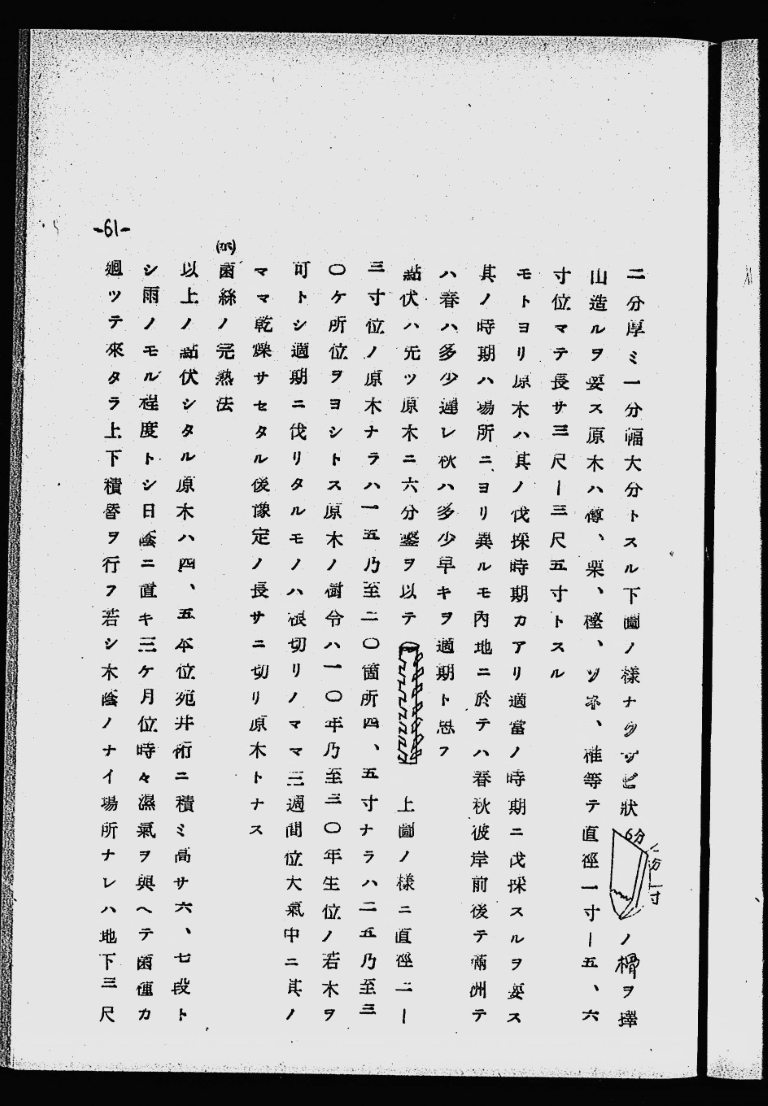 二分厚ミ一分幅大分トスル下圖ノ様ナクサビ狀 6分 二分 一寸 ノ榾ヲ擇
山造ルヲ要ス原木ハ樽、栗、樫、ソネ、椎等テ直徑一寸ー五、六
寸位マテ長サ三尺ー三尺五寸トスル
モトヨリ原木ハ其ノ伐採時期カアリ適當ノ時期ニ伐採スルヲ要ス
其ノ時期ハ場所ニヨリ異ルモ內地ニ於テハ春秋彼岸前後テ滿洲テ
ハ春ハ多少遲レ秋ハ多少早キヲ適期ト思フ
點伏ハ先ツ原木ニ六分鑿ヲ以テ 上圖ノ様ニ直徑二ー
三寸位ノ原木ナラハ一五乃至二〇箇所四、五寸ナラハ二五乃至三
〇ケ所位ヲヨシトス原木ノ樹令ハ一〇年乃至三〇年生位ノ若木ヲ
可トシ適期ニ伐リタルモノハ根切リノママ三週間位大氣中ニ其ノ
ママ乾燥サセタル後豫定ノ長サニ切リ原木トナス
菌絲ノ完熟法
以上ノ點伏シタル原木ハ四、五本位宛井桁ニ積ミ高サ六、七段ト
シ雨ノモル程度トシ日蔭ニ直キ三ケ月位時々濕氣ヲ與ヘテ菌種カ
廻ッテ來タラ上下積替ヲ行フ若シ木蔭ノナイ場所ナレハ地下三尺
-61-